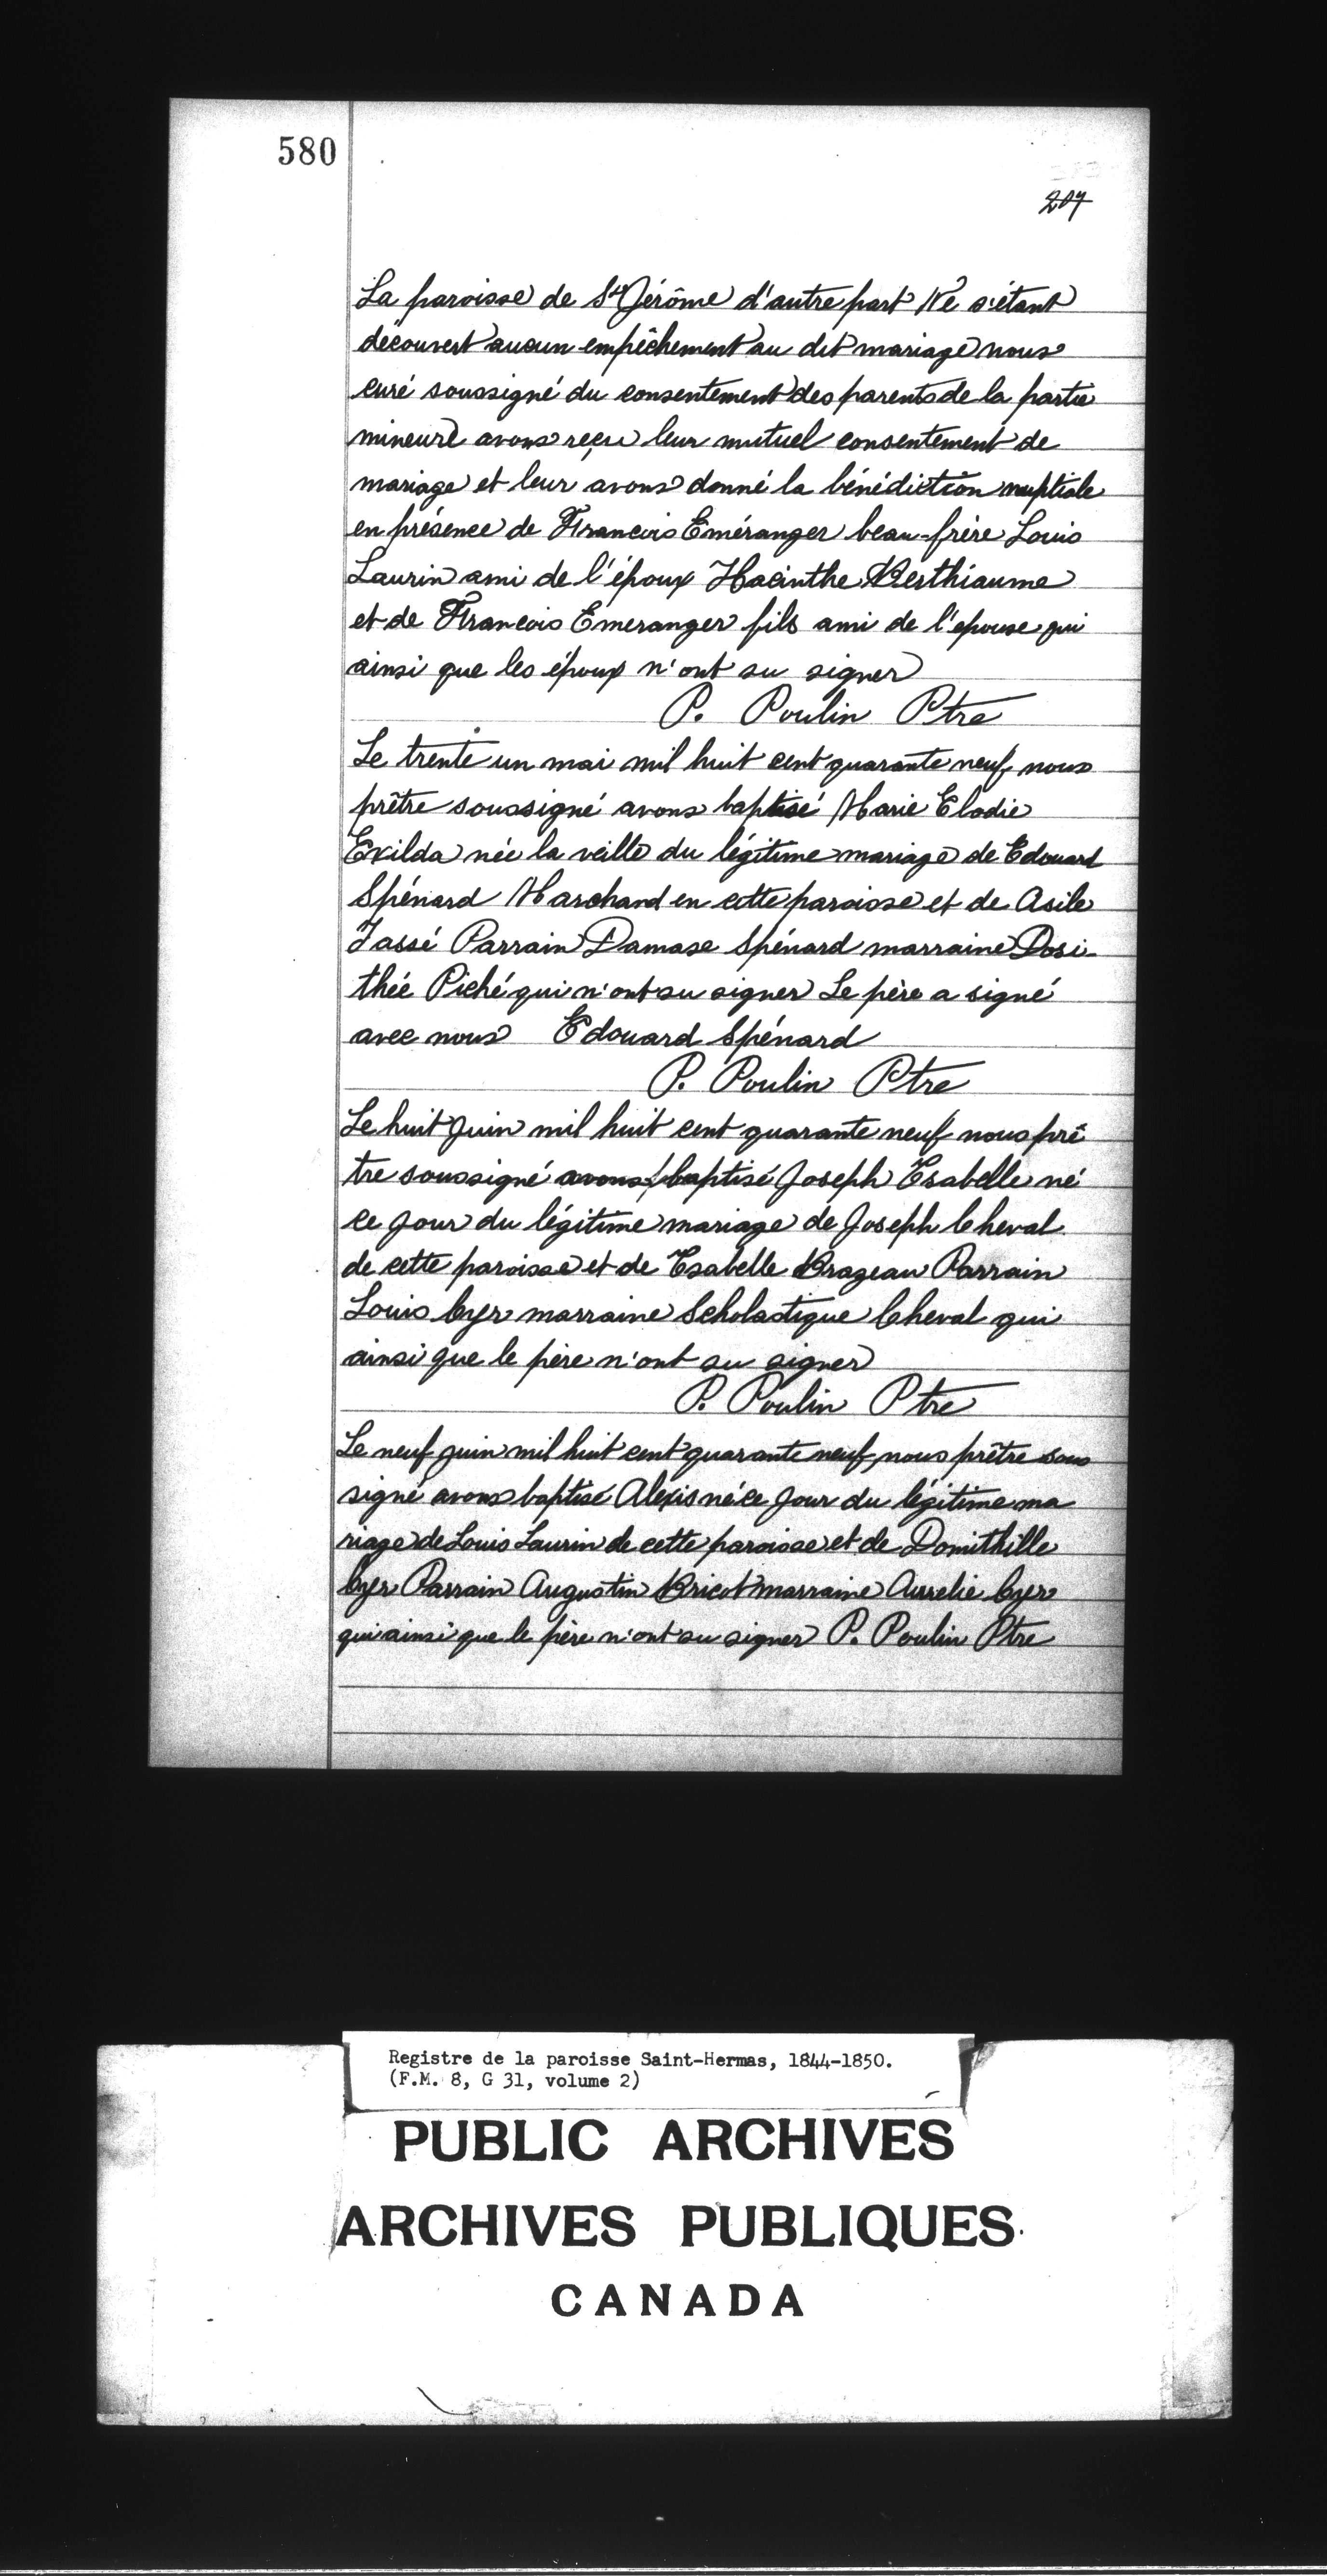 580
207
La paroisse de St Jérôme d'autre part Ne s'étant
découvert aucun empêchement au dit mariage nous
curé soussigné du consentement des parents de la partie
mineure avons reçu leur mutuel consentement de
mariage et leur avons donné la bénédiction nuptiale
en présence de Francois Eméranger beau-frère Louis
Laurin ami de l'époux Hacinthe Berthiaume
et de Francois Emeranger fils ami de l'epouse qui
ainsi que les époux n'ont su signer
P. Poulin Ptre
Le trente un mai mil huit cent quarante neuf nous
prêtre soussigné avons baptisé Marie Elodie
Exilda née la veille du légitime mariage de Edouard
Spénard Marchand en cette paroisse et de Asile
Jassé Parrain Damase Spénard marraine Dosi-
thée Piché qui n'ont su signer Le père a signé
avec nous Edouard Spénard
P. Poulin Ptre
Le huit Juin mil huit cent quarante neuf nous prê
tre soussigné avons baptisé Joseph Esabelle né
ce jour du légitime mariage de Joseph Cheval
de cette paroisse et de Esabelle Brazeau Parrain
Louis Cyr marraine Scholastique Cheval qui
ainsi que le père n'ont su signer
P. Poulin Ptre
Le neuf juin mil huit cent quarante neuf nous prêtre sous
signé avons baptisé Alexis né ce Jour du légitime ma
riage de Louis Laurin de cette paroisse et de Domithille
Cyr Parrain Augustin Bricot marraine Aurelie Cyr
qui ainsi que le père n'ont su signer P. Poulin Ptre
Registre de la paroisse Saint-Hermas, 1844-1850.
(F.M. 8, G 31, volume 2)
PUBLIC ARCHIVES
ARCHIVES PUBLIQUES
CANADA